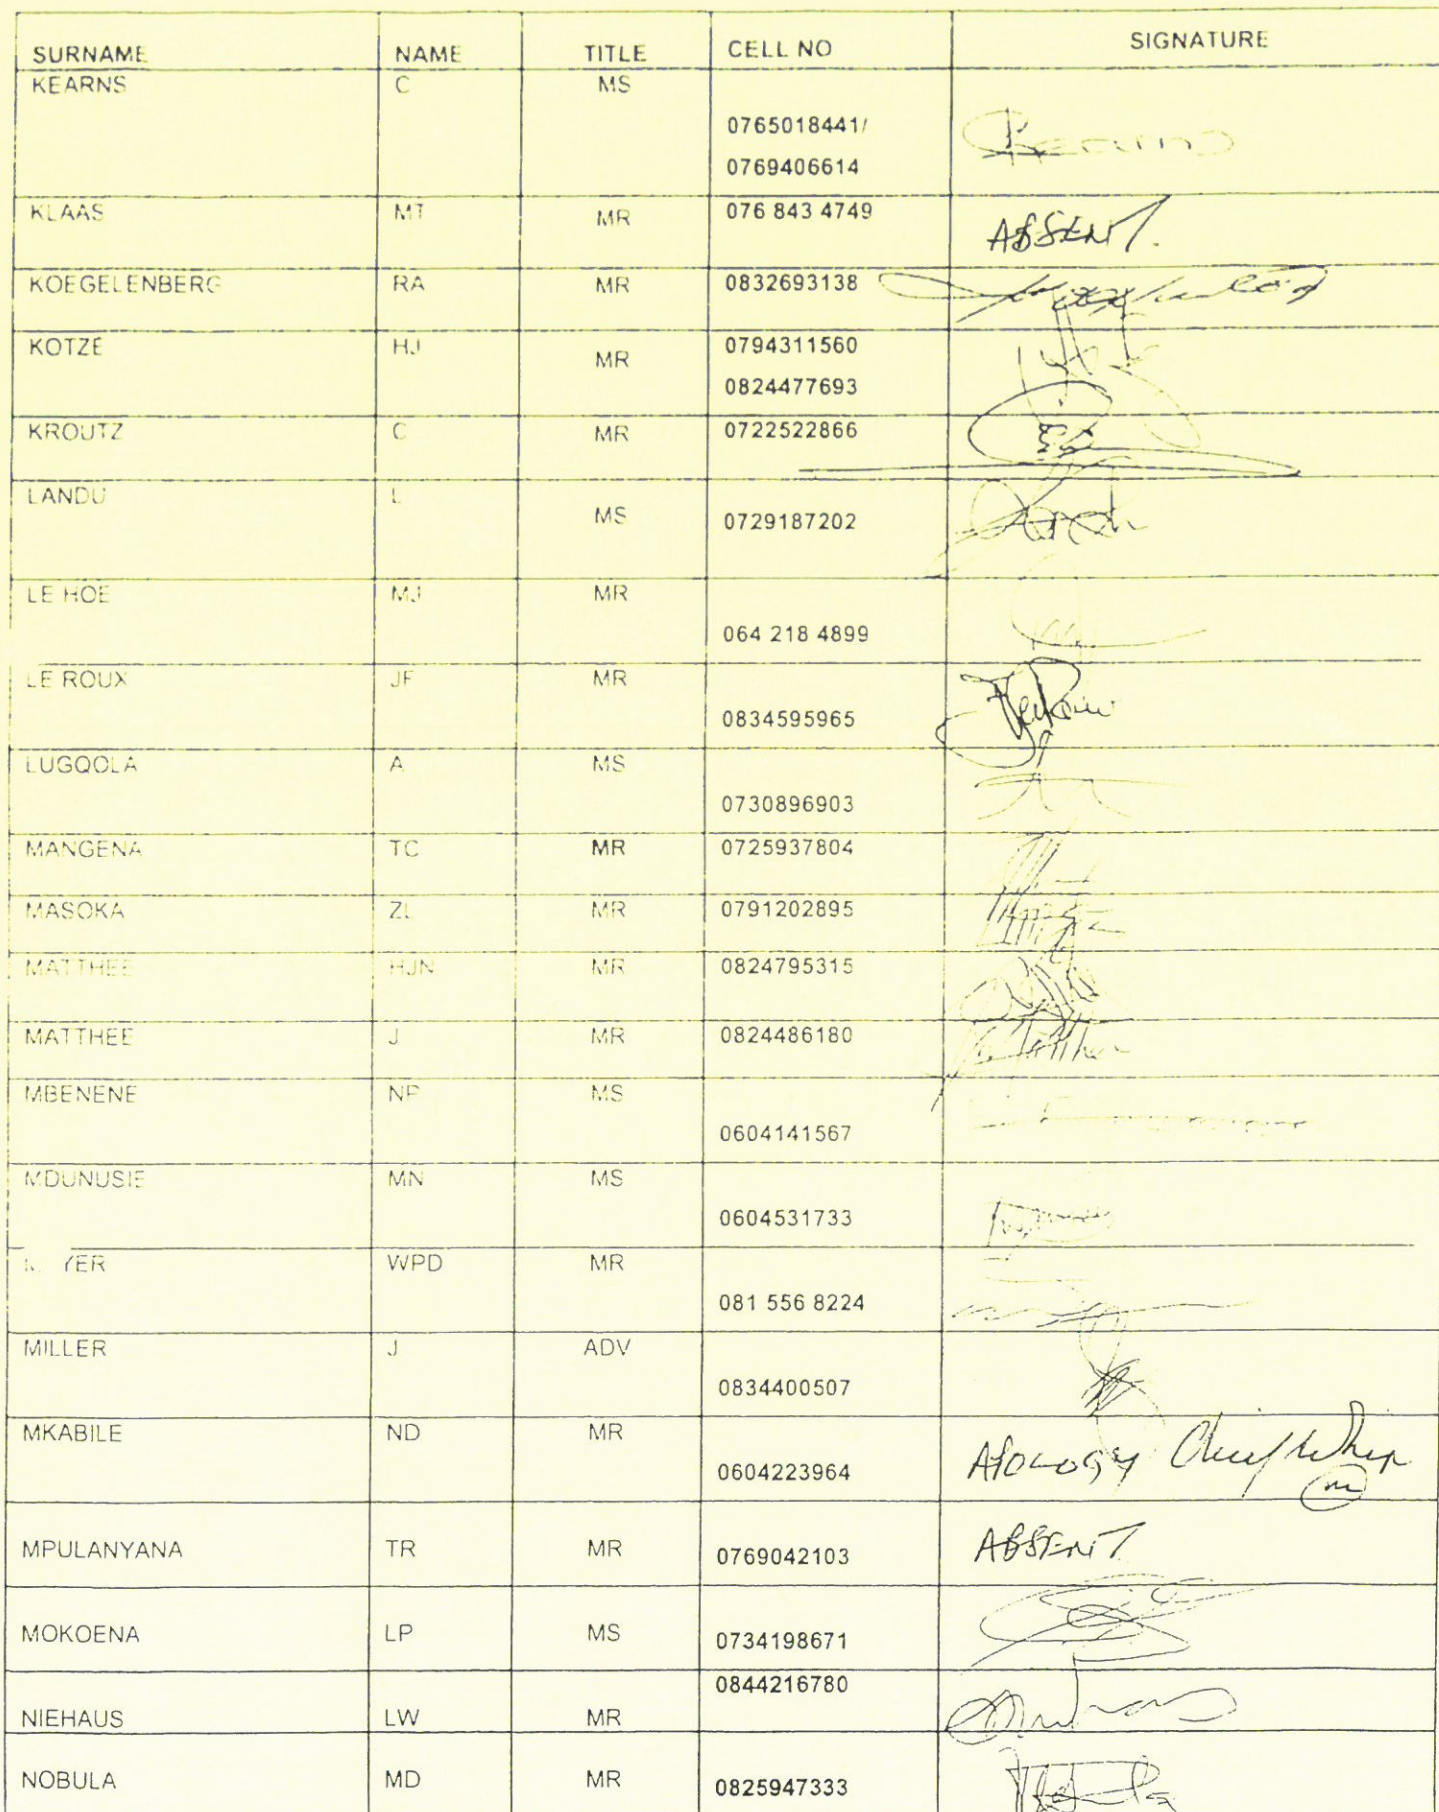 SURNAME NAME TITLE CELL NO SIGNATURE
KEARNS C MS
0765018441/ Kearns
0769406614
KLAAS MT MR 076 843 4749 ABSENT.
KOEGELENBERG RA MR 0832693138
KOTZE HJ MR 0794311560
0824477693
KROUTZ C MR 0722522866
LANDU L MS 0729187202
LE HOE MJ MR
064 218 4899
LE ROUX JF MR
0834595965
LUGQOLA A MS
0730896903
MANGENA TC MR 0725937804
MASOKA ZL MR 0791202895
MATTHEE HJN MR 0824795315
MATTHEE J MR 0824486180
MBENENE NP MS
0604141567
MDUNUSIE MN MS
0604531733
YER WPD MR
081 556 8224
MILLER J ADV
0834400507
MKABILE ND MR
0604223964 APOLOGY Chief Whip
MPULANYANA TR MR 0769042103 ABSENT
MOKOENA LP MS 0734198671
0844216780
NIEHAUS LW MR
NOBULA MD MR 0825947333